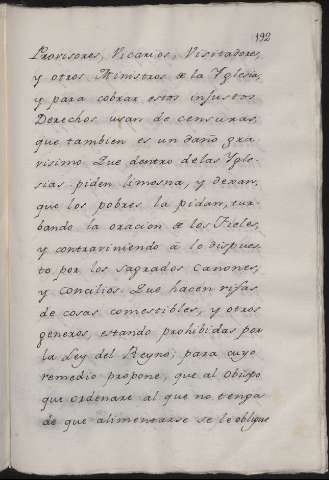 192
Provisores, Vicarios, Visitadores,
y otros Ministros de la Yglesia,
y para cobrar estos injustos
Derechos usan de censuras,
que tambien es un daño gra-
visimo. Que dentro de las Ygle-
sias piden limosna, y dexan,
que los pobres la pidan, tur-
bando la oracion de los Fieles,
y contraviniendo à lo dispues-
to por los sagrados Canones,
y Concilios. Que hacen rifas
de cosas comestibles, y otros
generos, estando prohibidas por
la Ley del Reyno; para cuyo
remedio propone, que al Obispo
que ordenare al que no tenga
de que alimentarse se le obligue